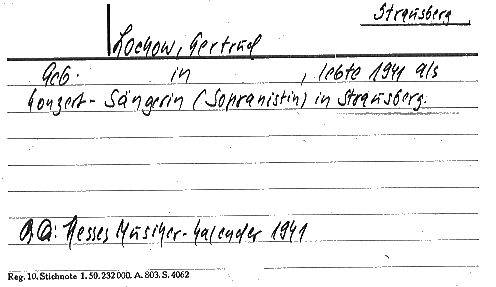 Strausberg
Lochow, Gertrud
Geb. in , lebte 1941 als
Konzert-Sängerin (Sopranistin) in Strausberg.
Q.Q: Hesses Musiker-Kalender 1941
Reg. 10. Stichnote 1. 50. 232000. A. 803. S. 4062